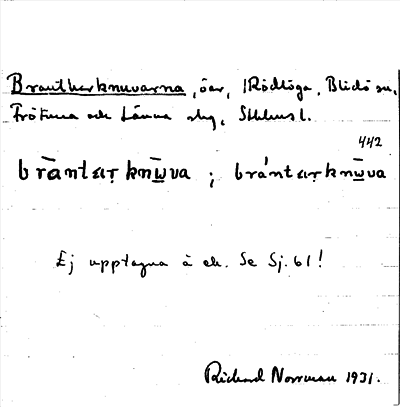 Brantbarknuvarna, öar, Rödlöga, Blidö sn,
Frötuna och Länna skg, Sthlms l.
442
brāntaṛ knw̲va ; brántaṛknw̲va
Ej upptagna å ek. Se Sj. 61!
Rickard Norrman 1931.